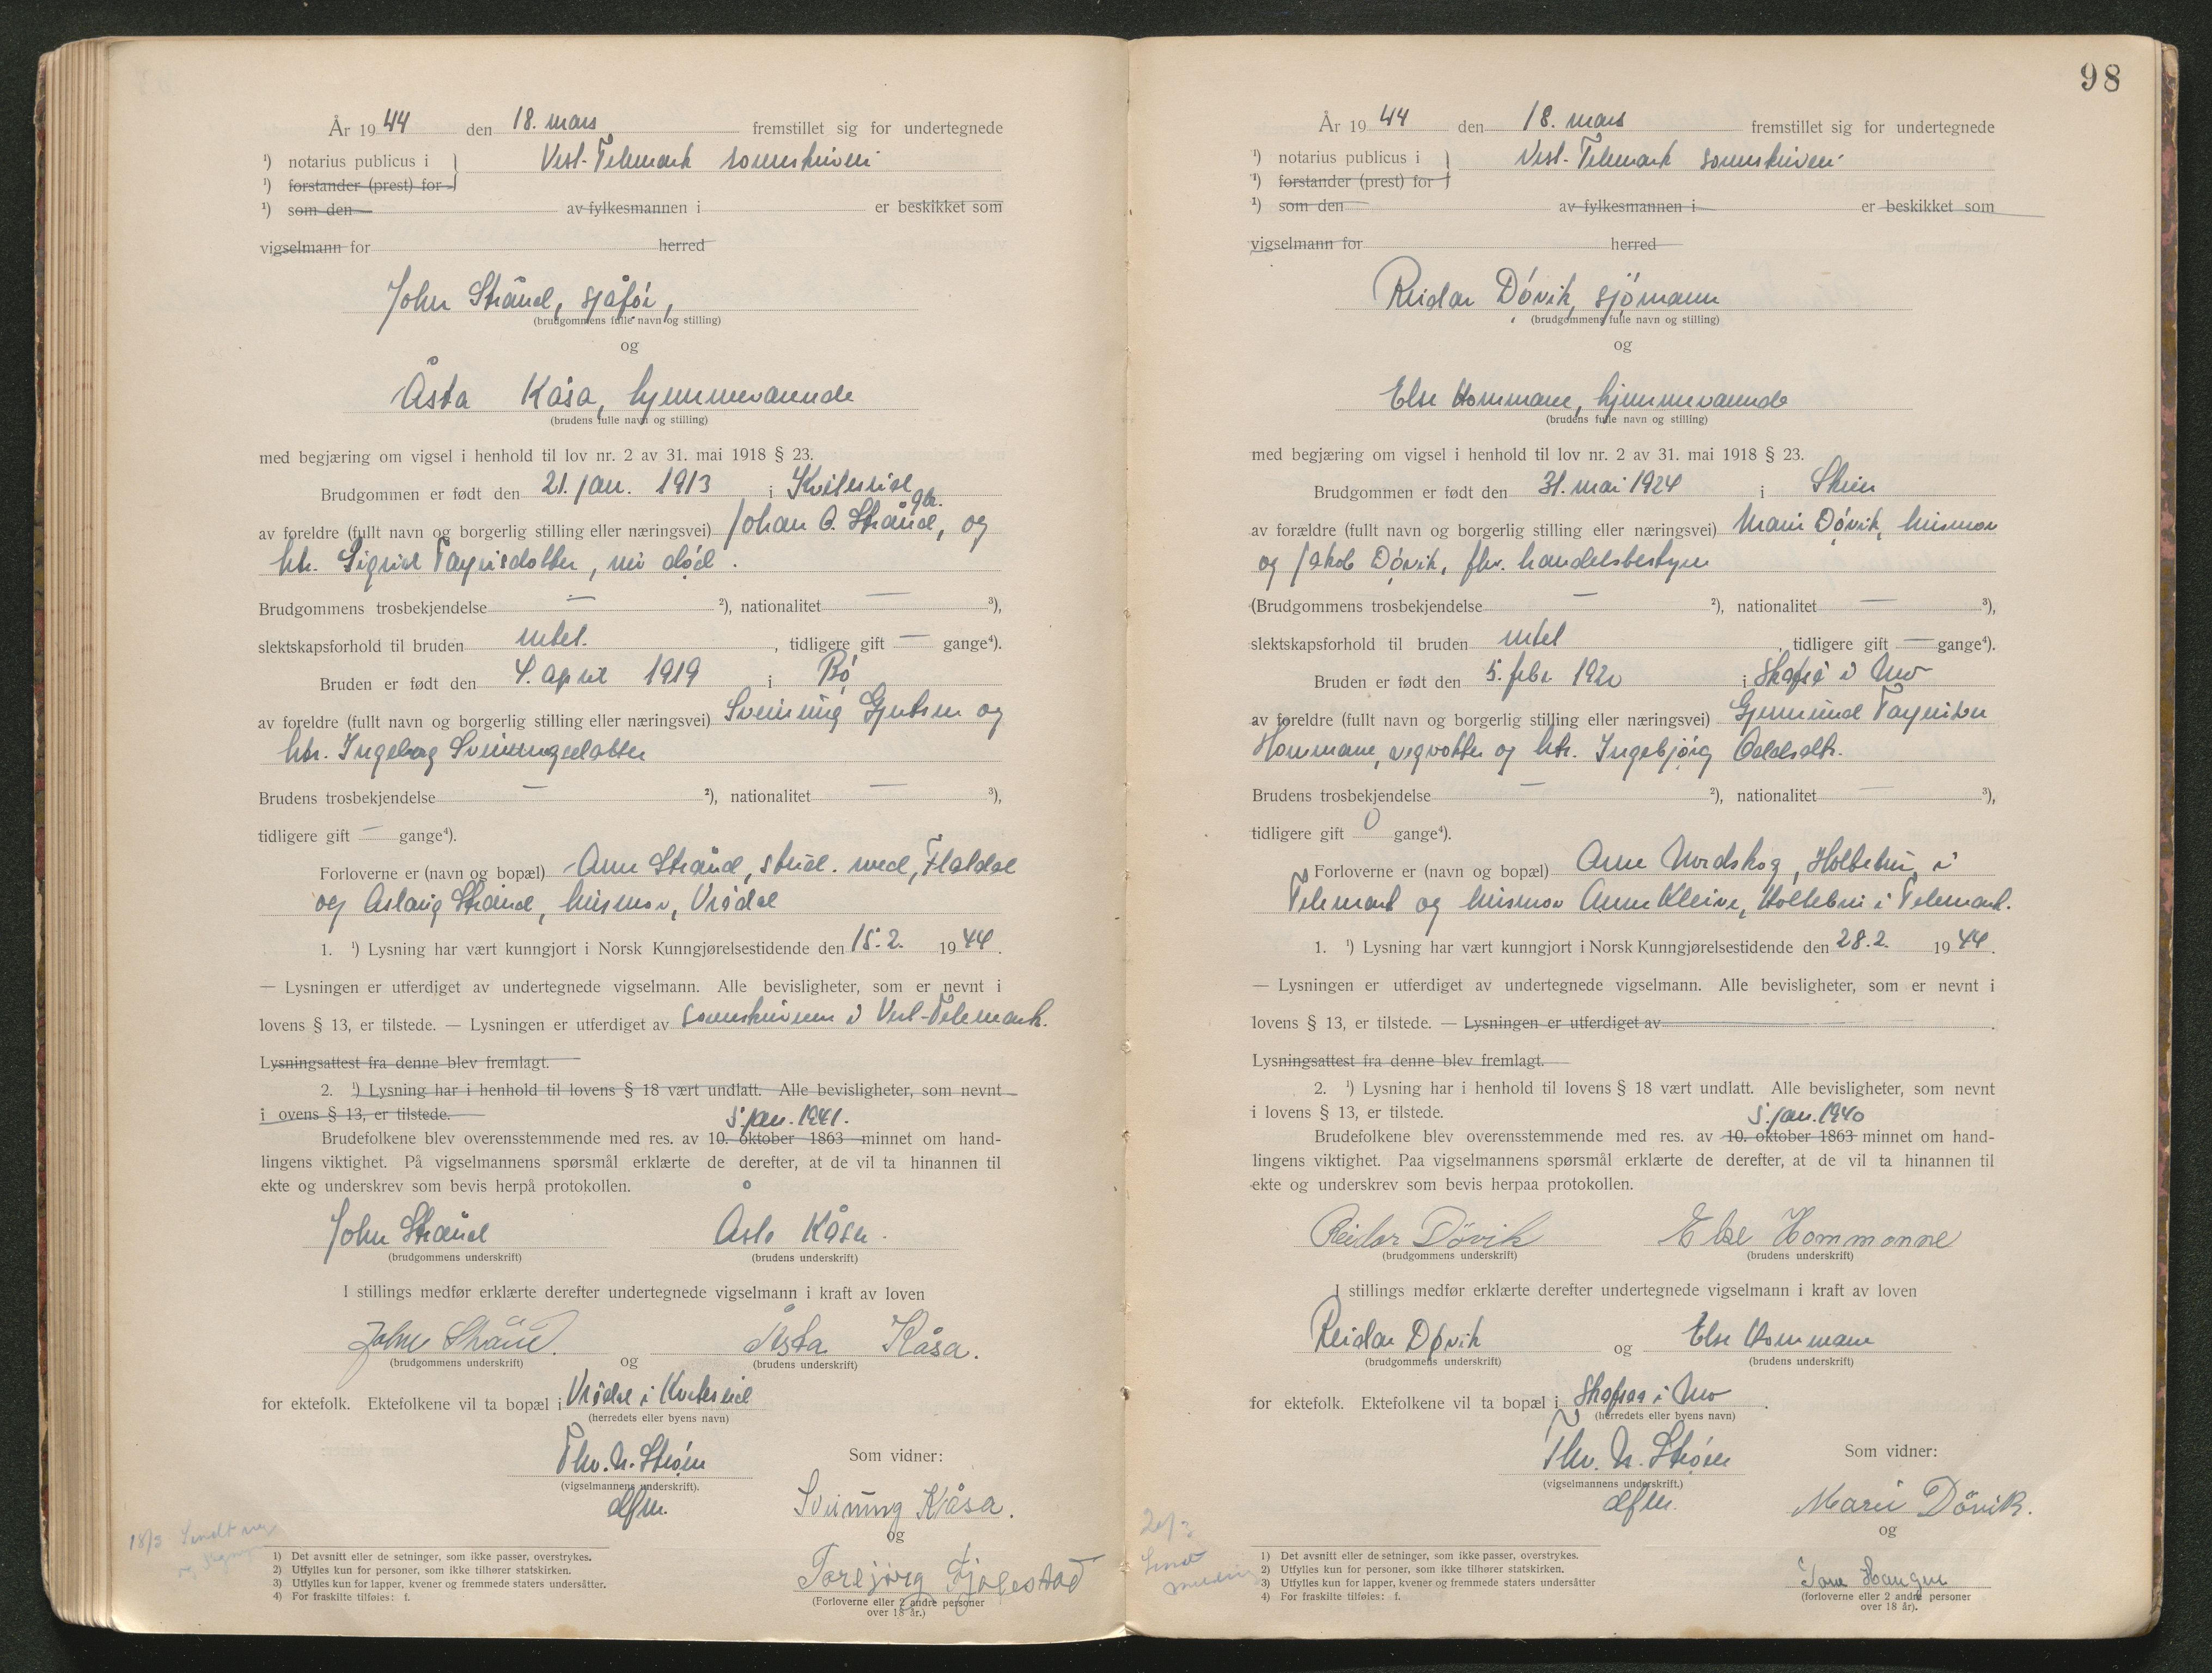 År 1944 den 18. mars fremstillet sig for undertegnede
¹) notarius publicus i Vest-Telemark sorenskriveri
¹) forstander (prest) for
¹) som den av fylkesmannen i er beskikket som
vigselmann for herred
John Strånd, sjåfør,
(brudgommens fulle navn og stilling)
og
Åsta Kåsa, hjemmeværende
(brudens fulle navn og stilling)
med begjæring om vigsel i henhold til lov nr. 2 av 31. mai 1918 § 23.
Brudgommen er født den 21. jan. 1913 i Kviteseid
av foreldre (fullt navn og borgerlig stilling eller næringsvei) Johan O. Strånd, gbr. og
htr. Sigrid Targeisdotter, nå død.
Brudgommens trosbekjendelse — ²), nationalitet — ³),
slektskapsforhold til bruden intet. , tidligere gift — gange⁴).
Bruden er født den 4. april 1919 i Bø
av foreldre (fullt navn og borgerlig stilling eller næringsvei) Sveinung og
htr. Ingeborg Sveinungsdotter
Brudens trosbekjendelse — ²), nationalitet — ³),
tidligere gift — gange⁴).
Forloverne er (navn og bopæl) Strånd, stud. med, Flatdal
og Aslaug Strånd, husmor, Vrådal
1. ¹) Lysning har vært kunngjort i Norsk Kunngjørelsestidende den 15.2. 1944.
— Lysningen er utferdiget av undertegnede vigselmann. Alle bevisligheter, som er nevnt i
lovens § 13, er tilstede. — Lysningen er utferdiget av sorenskriveren i Vest-Telemark.
Lysningsattest fra denne blev fremlagt.
2. ¹) Lysning har i henhold til lovens § 18 vært undlatt. Alle bevisligheter, som nevnt
i ovens § 13, er tilstede.
5. jan. 1941.
Brudefolkene blev overensstemmende med res. av 10. oktober 1863 minnet om hand-
lingens viktighet. På vigselmannens spørsmål erklærte de derefter, at de vil ta hinannen til
ekte og underskrev som bevis herpå protokollen.
John Strånd Åsta Kåsa.
(brudgommens underskrift) (brudens underskrift)
I stillings medfør erklærte derefter undertegnede vigselmann i kraft av loven
John Strånd. og Åsta Kåsa.
(brudgommens underskrift) (brudens underskrift)
for ektefolk. Ektefolkene vil ta bopæl i Vrådal i Kviteseid
(herredets eller byens navn)
Thv. N. Strøm Som vidner:
(vigselmannens underskrift).
dfm. Sveinung Kåsa.
og
18/3 Sendt
Torbjørg Fjølestad
(Forloverne eller 2 andre personer
over 18 år.)
1) Det avsnitt eller de setninger, som ikke passer, overstrykes.
2) Utfylles kun for personer, som ikke tilhører statskirken.
3) Utfylles kun for lapper, kvener og fremmede staters undersåtter.
4) For fraskilte tilføies: f.
98
År 1944 den 18. mars fremstillet sig for undertegnede
¹) notarius publicus i Vest-Telemark sorenskriveri
¹) forstander (prest) for
¹) som den av fylkesmannen i er beskikket som
vigselmann for herred
Reidar Døvik, sjømann
(brudgommens fulle navn og stilling)
og
Else Hommane, hjemmeværende
(brudens fulle navn og stilling)
med begjæring om vigsel i henhold til lov nr. 2 av 31. mai 1918 § 23.
Brudgommen er født den 31. mai 1924 i Skien
av forældre (fullt navn og borgerlig stilling eller næringsvei) Marie Døvik, husmor
og Jakob Døvik, fhv. handelsbestyrer
(Brudgommens trosbekjendelse — ²), nationalitet — ³),
slektskapsforhold til bruden intet tidligere gift — gange⁴).
Bruden er født den 5. febr. 1920 i Skafså i Mo
av foreldre (fullt navn og borgerlig stilling eller næringsvei) Gjermund Targeitson
Hommane, vegvokter og htr. Ingebjørg Oddsdtr.
Brudens trosbekjendelse — ²), nationalitet — ³),
tidligere gift 0 gange⁴).
Forloverne er (navn og bopæl) Arne Nordskog, Holtebru, i
Telemark og husmor Anne Kleive, Holtebru i Telemark.
1. ¹) Lysning har vært kunngjort i Norsk Kunngjørelsestidende den 28.2. 1944.
— Lysningen er utferdiget av undertegnede vigselmann. Alle bevisligheter, som er nevnt i
lovens § 13, er tilstede. — Lysningen er utferdiget av
Lysningsattest fra denne blev fremlagt.
2. ¹) Lysning har i henhold til lovens § 18 vært undlatt. Alle bevisligheter, som nevnt
i lovens § 13, er tilstede.
5. jan. 1940
Brudefolkene blev overensstemmende med res. av 10. oktober 1863 minnet om hand-
lingens viktighet. Paa vigselmannens spørsmål erklærte de derefter, at de vil ta hinannen til
ekte og underskrev som bevis herpaa protokollen.
Reidar Dövik Else Hommanne
(brudgommens underskrift) (brudens underskrift)
I stillings medfør erklærte derefter undertegnede vigselmann i kraft av loven
Reidar Døvik og Else Hommane
(brudgommens underskrift) (brudens underskrift)
for ektefolk. Ektefolkene vil ta bopæl i Skafsaa i Mo.
(herredets eller byens navn)
Thv. N. Strøm Som vidner:
(vigselmannens underskrift.)
dfm. Marie Dövik.
og
Haugen
(forloverne eller 2 andre personer
over 18 år).
1) Det avsnitt eller de setninger, som ikke passer, overstrykes.
2) Utfylles kun for personer, som ikke tilhører statskirken.
3) Utfylles kun for lapper, kvener og fremmede staters undersåtter
4) For fraskilte tilføies: f.